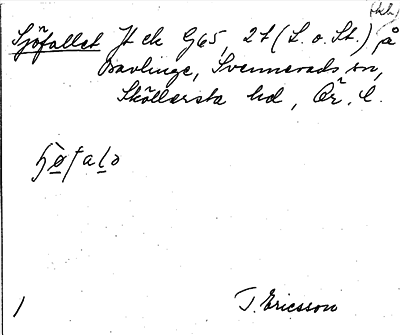 (kh)
Sjöfallet Jt ek G65, 2t (L. o. St.) på
Davlinge, Svennevads sn,
Sköllersta hd, Ör. l.
T. Ericsson